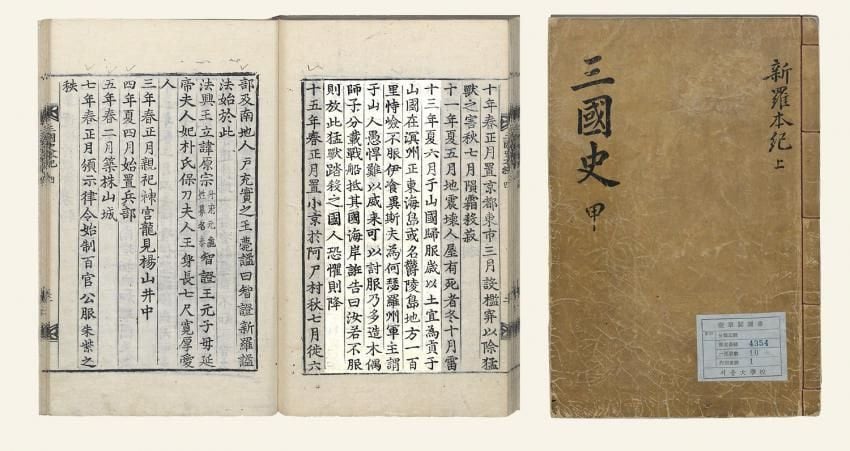 十年春正月置京都東市三月設檻穽以除猛
獸之害秋七月隕霜殺菽
十一年夏五月地震壞人屋有死者冬十月雷
十三年夏六月于山國歸服歲以土宜為貢于
山國在溟州正東海島或名欝陵島地方一百
里恃嶮不服伊飡異斯夫為何瑟羅州軍主謂
于山人愚悍難以威来可以計服乃多造木偶
師子分載戰船抵其國海岸誑告曰汝若不服
則放此猛獸踏殺之國人恐懼則降
十五年春正月置小京於阿尸村秋七月徙六
部及南地人戶充實之王薨謚曰智證新羅謚
法始於此
法興王立諱原宗冊府元龜姓募名秦智證王元子母延
帝夫人妃朴氏保刀夫人王身長七尺寛厚愛
人
三年春正月親祀神宮龍見楊山井中
四年夏四月始置兵部
五年春二月築株山城
七年春正月頒示律令始制百官公服朱紫之
秩
新羅本紀上
三國史 甲
4354
10
1
서울大學校